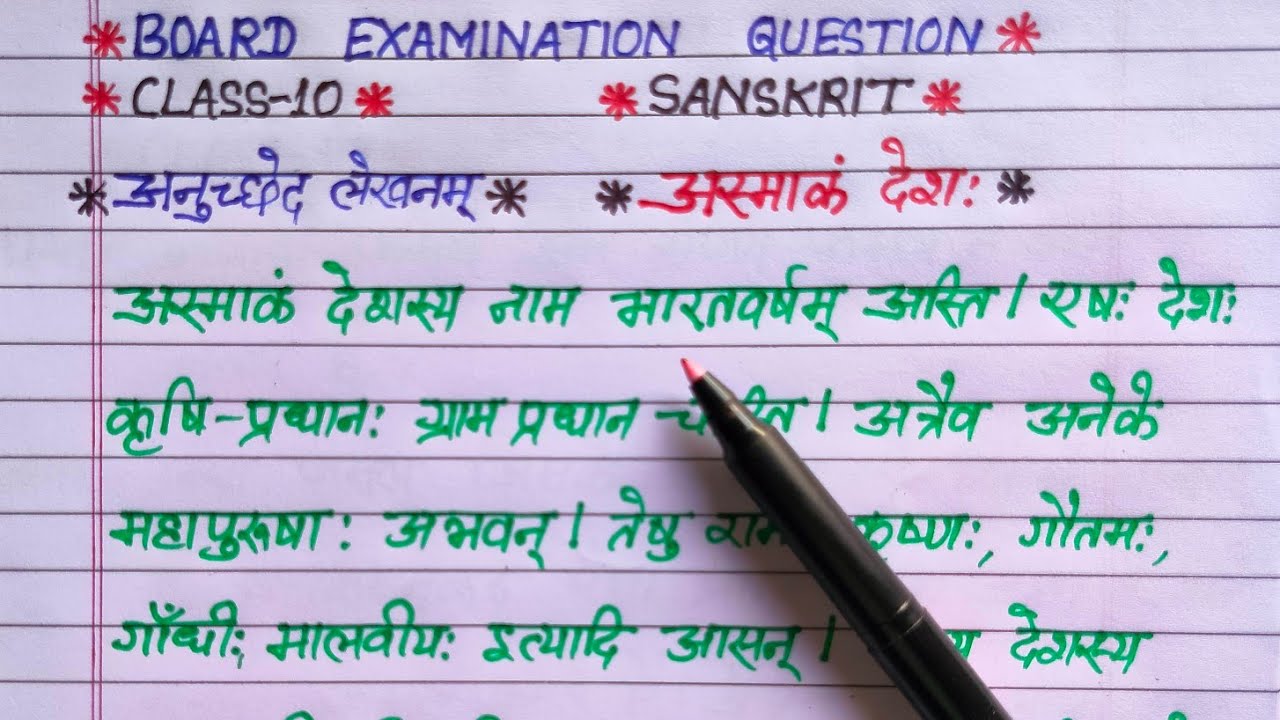 *BOARD EXAMINATION QUESTION*
*CLASS-10* *SANSKRIT*
*अनुच्छेद लेखनम्* *अस्माकं देशः*
अस्माकं देशस्य नाम भारतवर्षम् अस्ति। एषः देशः
कृषि-प्रधानः ग्राम प्रधान । अत्रैव अनेके
महापुरूषाः अभवन्। तेषु कृष्णः, गौतमः,
गाँधीः मालवीयः इत्यादि आसन्। देशस्य